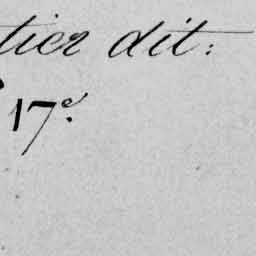 tier dit:
17e.